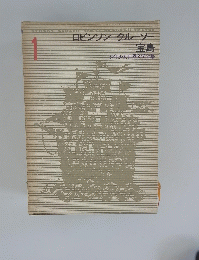 1
ロビンソン・クルーソー
宝島